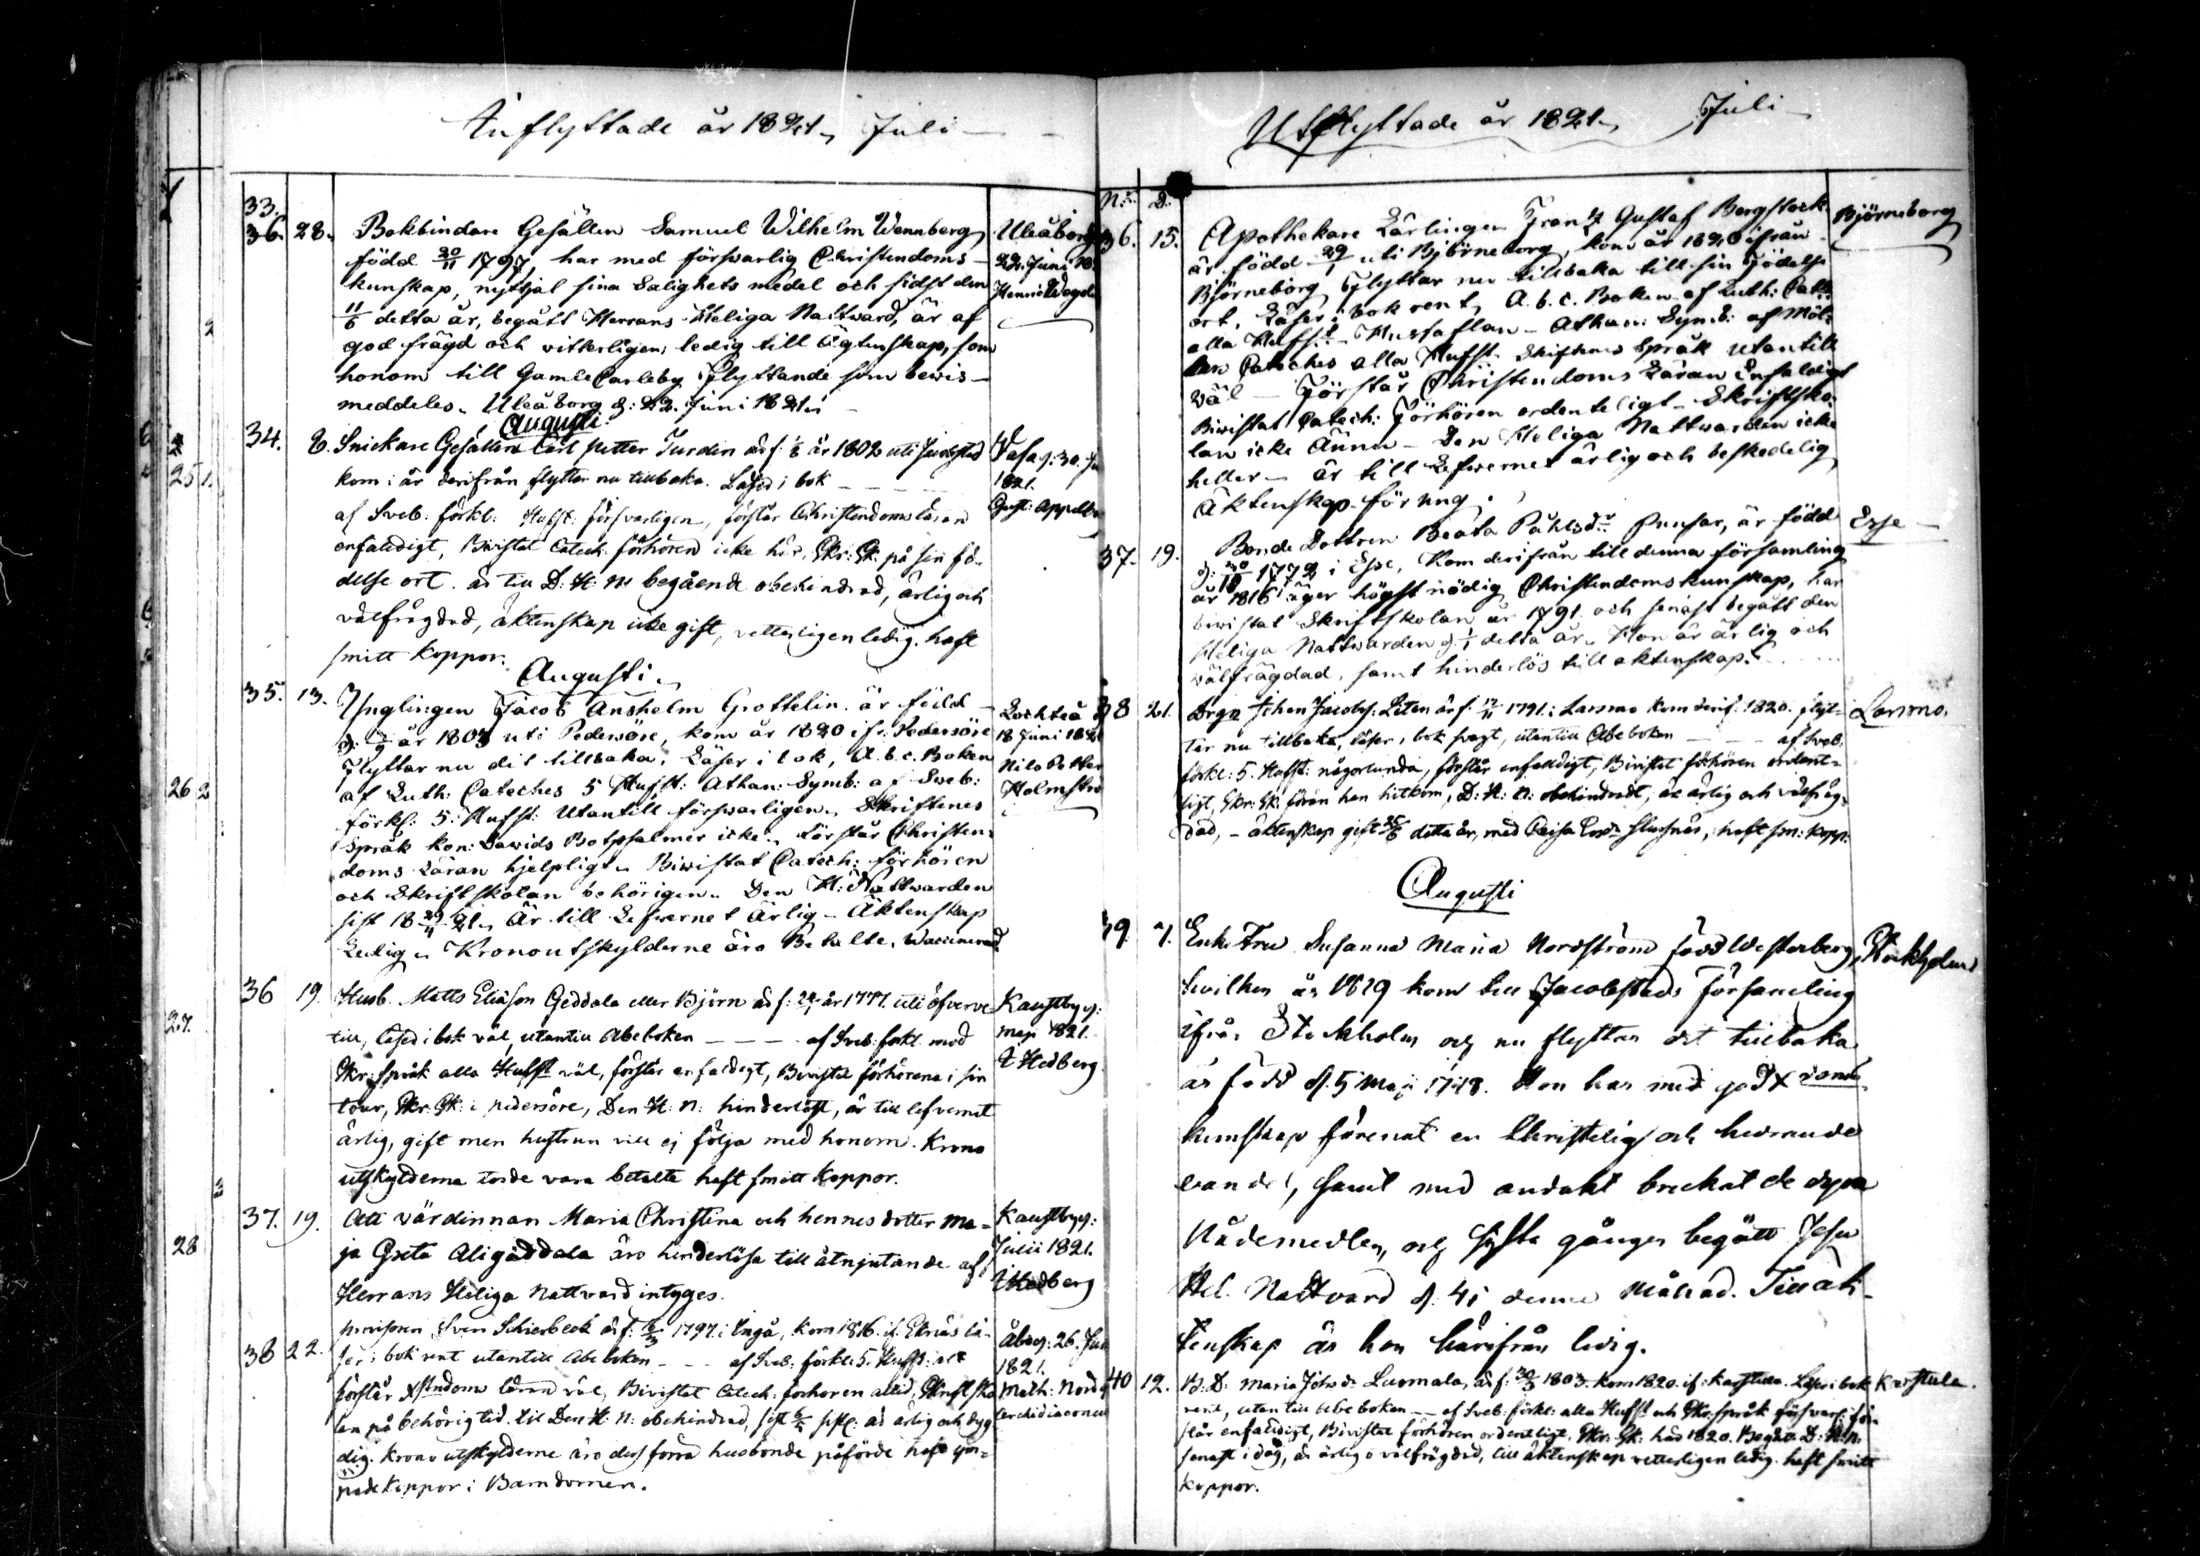 Inflyttade år 1821. Juli
33.
36. 28. Bokbindare Gesällen Samuel Wilhelm Wennberg Uleåborg
född 20/11 1797, har med förswarlig Christendoms- 22. Juni
kunskap, nyttjat sina Salighets medel och sidst den Henric
11/6 detta år, begått Herrans Heliga Nattward, är af
god frägd och vitterligen ledig till Ägtenskap, som
honom till Gamle Carleby flyttande som bewis-
meddeles. Uleåborg d: 22. Juni 1821.
Augusti
34. Snickare Gesällen Carl Petter är f. år 1802 uti Wasa d: 30.
kom i år derifrån flyttar nu tillbaka. Läser i bok 1821.
af Sveb: förkl: Hufst: försvarligen, förstår Christendomsläran Gust:
enfaldigt, Bivistat Catech: förhören icke här, Skr: Sk: på sin fö-
delse ort. är till D: H: N: begående obehindrad, ärlig och
välfrägdad, äktenskap icke gift, vetterligen ledig. haft
smitt koppor.
Augusti
35. 13. Ynglingen Jacob Anshelm Grottelin är född Lochteå
år 1803 uti Pedersöre, kom år 1820 ifr: Pedersöre 18 Juni
flyttar nu dit tillbaka. Läser i bok, A.b.c. Boken Nils Petter
af Luth: Cateches 5 Hufst: Athan: Symb: af Sweb: Holmströ
förkl: 5: Hufst: Utantill förswarligen, Skriftenes
Språk kon: Dawids Botpsalmer icke. Förstår Christen-
doms Läran hjelpligt. Biwistat Catech: förhören
och Skriftskolan behörigen. Den H: Nattwarden
sist Är till Lefwernet Ärlig - Äktenskap
Ledig. Kronoutskylderne äro Betalte. Waccinerad
36 19. Husb. Matts Eliäson Geddala eller Björn är f: år 1777 uti öfverve- Kaustby d:
till, Läser i bok väl, utantill Abeboken - - - af Sveb: förkl: med maji 1821.
Skr: Språk alla Hufst: väl, förstår enfaldigt, Bivistat förhörena i sin Hedberg
tour, Skr: Sk: i pedersöre, Den H: N: hinderlöst, är till lefvernet
ärlig, gift men hustrun vill ej följa med honom. Krono
utskylderna torde vara betalte haft smitt koppor.
37. 19. Att värdinnan Maria Christina och hennes dotter Ma- Kaustby d:
ja Greta Aligäddala äro hinderlösa till åtnjutande af Julii 1821.
Herrans Heliga Nattvard intyges. Hedberg
38 22. provisoren Sven Schierbeck är f: 6/3 1797 i Ingå, kom 1816. if: Eknäs lä- Åbo d: 26.
ser i bok rent utantill Abeboken - - af Sveb: förkl: 5. Hufst: 1821.
förstår Xstndoms läran väl, Bivistat Catech: förhören alltid, Skriftsko- Math: Nord
lan på behörig tid. till Den H: N: obehindrad, sist är ärlig och dyg- archidiaconus
dig. krono utskylderne äro dess förra husbonde påförde haft
koppor i Barndomen.

Utflyttade år 1821. Juli
N:o D:
36. 15. Apothekare Lärlingen Frantz Gustaf Bergstock Björneborg
är född 29/1 uti Björneborg, kom år 1820 ifrån
Björneborg, flyttar nu tillbaka till sin Födelse
ort. Läser i bok rent, A.b.c. Boken af Luth: Cate:
alla Hufst: Hustaflan - Athan: Symb: af Möl-
lers Cateches alla Hufst: Skriftenes Språk Utantill
väl - Förstår Christendoms Läran Enfaldigt
Biwistat Catech: Förhören ordenteligt - Skriftsko-
lan icke Ännu - Den Heliga Nattwarden icke
heller - är till Lefwernet ärlig och beskedelig
Äktenskap för ung.
37. 19. Bonde Dottren Beata Påhlsdr Punsar, är född Esse
d: 20/10 1772 i Esse, Kom derifrån till denna församling
år 1816 äger högst nödig Christendomskunskap, har
bivistat Skriftskolan år 1791 och senast begått den
Heliga Nattwarden d: detta år. Hon är ärlig och
välfrägdad, samt hinderlös till äktenskap.
38 21. Drgn Johan Jacobss: Liten är f: 12/11 1791 i Larsmo kom derif: 1820. flyt- Larsmo.
tar nu tillbaka, läser i bok svagt, utantill Abeboken - - - af Sveb:
förkl: 5. Hufst: någorlunda, förstår enfaldigt, Bivistat förhören ordent-
ligt, Skr: Sk: förrän han hitkom, D: H: N: obehindradt, är ärlig och välfräg-
dad, - äktenskap gift detta år, med Caisa haft sm: kopp:
Augusti
39 7. Enke Fru Susanna Maria Nordström född Westerberg, Stockholm
hvilken år 1819 kom till Jacobstads Församling
ifrån Stockholm och nu flyttar dit tillbaka
är född d. 5 Maji 1748. Hon har med god Xdoms
kunskap förenat en Christelig och hedrande
vandel, samt med andakt bruckat de dyra
Nådemedlen, och sista gången begått Jesu
Hel. Nattvard d. denna Månad. Till äk-
tenskap är hon härifrån ledig.
40 12. B.D: Maria Johsdr Luomala, är f: 20/3 1803. kom 1820. if: Karstula. Läser i bok Karstula.
rent, utantill Abeboken - af Sveb: förkl: alla Hufst: och Skr: Språk försvarl: för-
står enfaldigt, Bivistat förhören ordentligt, Skr: Sk: här 1820. Begått D: H: N:
senast i dag, är ärlig o välfrägdad, till äktenskap vetterligen ledig. haft smitt
koppor.